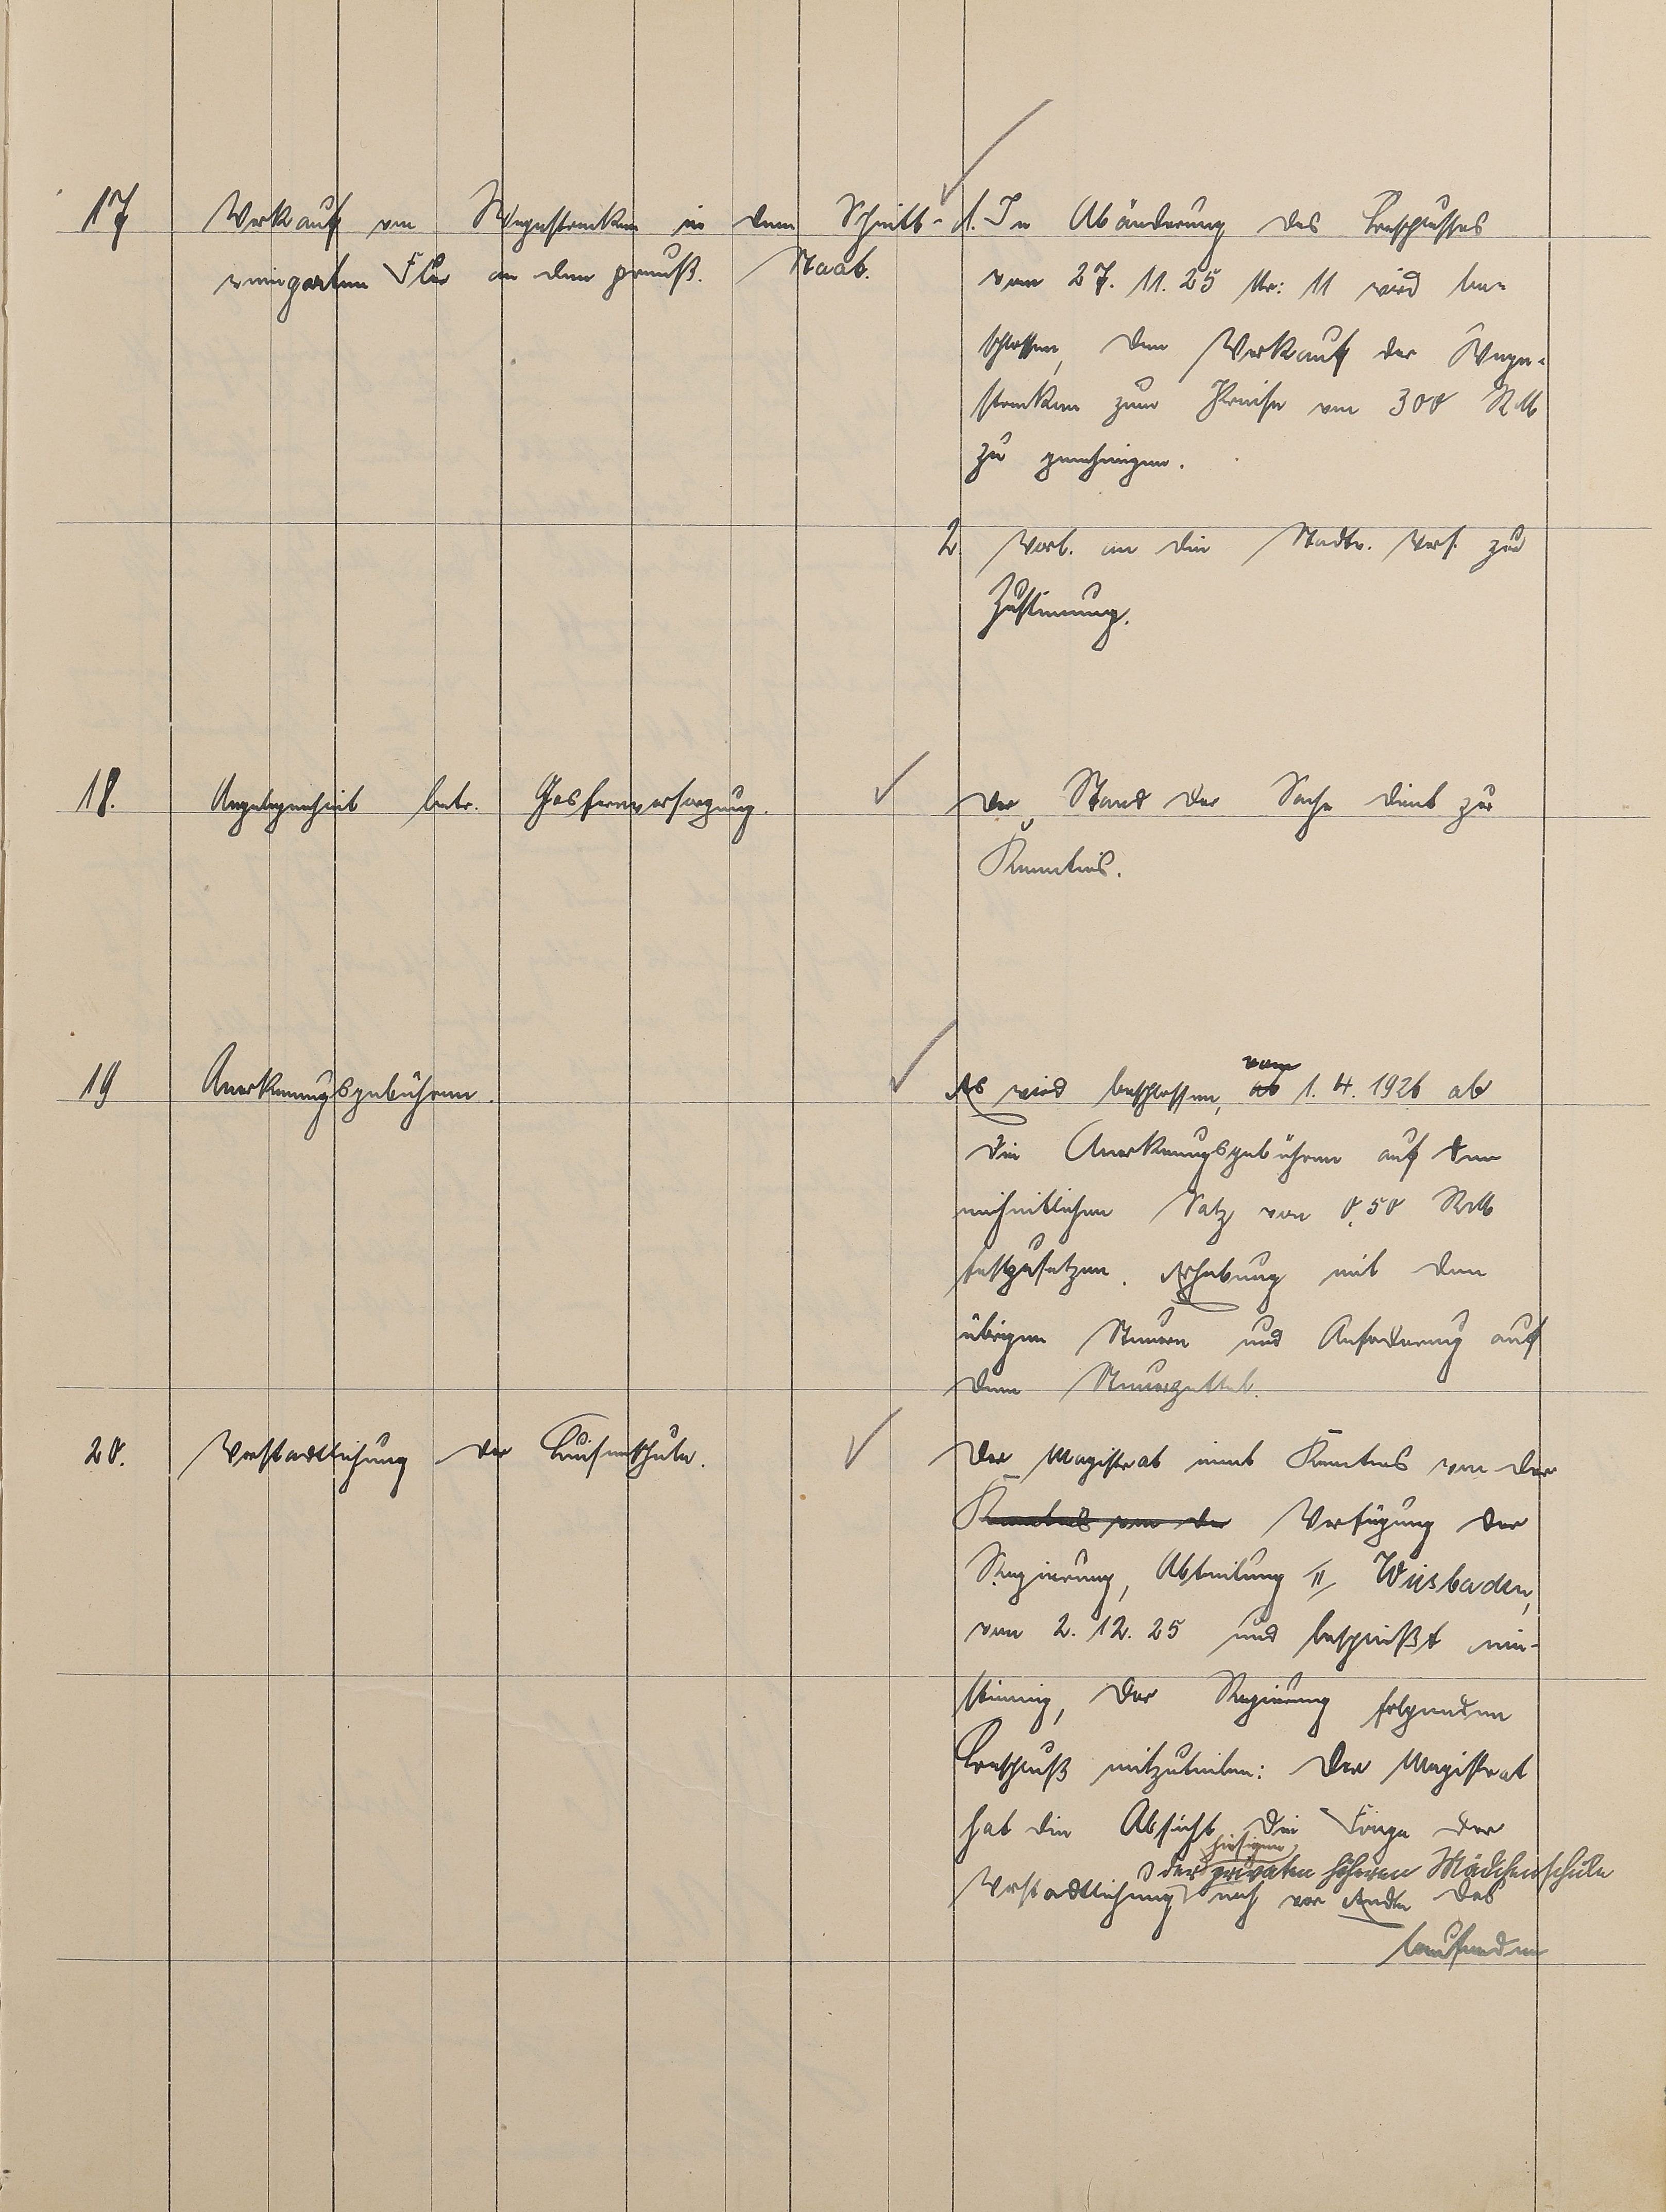 17 Verkauf von Wegestrecken in dem Schitt-
weingarten Flur an den preuß. Staat.
1. In Abänderung des Beschlusses
vom 27. 11. 25 Nr: 11 wird be-
schlossen, den Verkauf der Wege-
strecken zum Preise von 300 RM
zu genehmigen.
2. Vorl. an die Stadtv. Vers. zur
Zustimmung.
18. Angelegenheit betr. Gasfernversorgung.
Der Stand der Sache dient zur
Kenntnis.
19 Anerkennungsgebühren.
vom
Es wird beschlossen, ab 1. 4. 1926 ab
die Anerkennungsgebühren auf den
einheitlichen Satz von 0,50 RM
festzusetzen. Erhebung mit den
übrigen Steuern und Anforderung auf
dem Steuerzettel.
20. Verstadtlichung der Luisenschule.
Der Magistrat nimt Kenntnis von der
Kenntnis von der Verfügung der
Regierung, Abteilung II, Wiesbaden,
vom 2. 12. 25 und beschließt ein-
stimmig, der Regierung folgenden
Beschluß mitzuteilen: Der Magistrat
hat die Absicht, die Frage der
hiesigen
der privaten höheren Mädchenschule
Verstadtlichung noch vor Ende des
laufenden